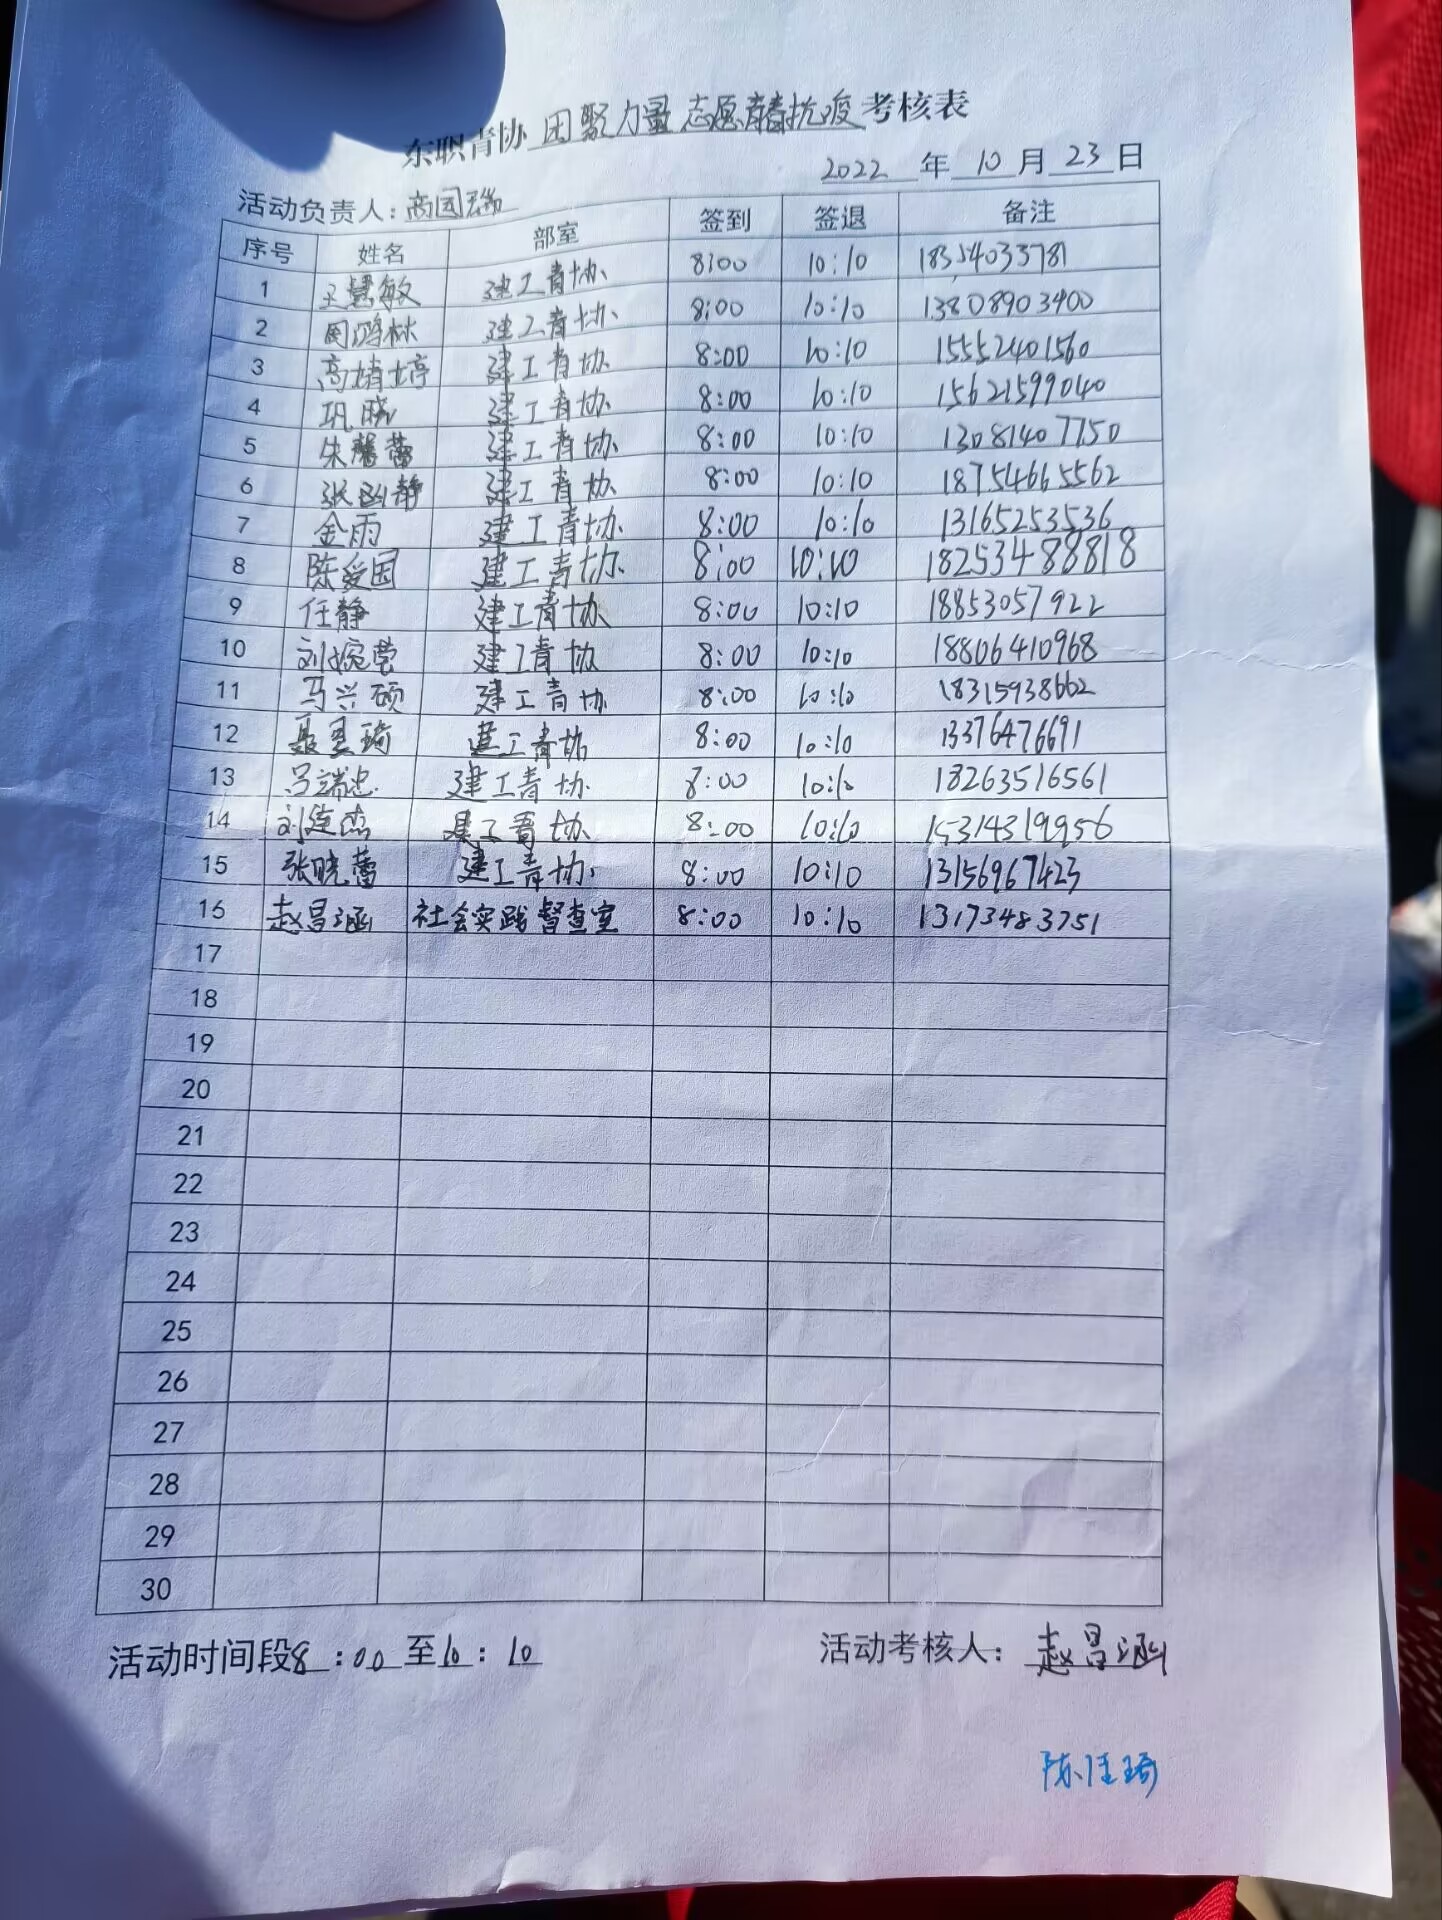 东职青协 团聚力量 志愿青春抗疫 考核表
2022 年 10 月 23 日
活动负责人：商园瑞
序号 姓名 部室 签到 签退 备注
1 王慧敏 建工青协 8:00 10:10 18354033781
2 周鸿林 建工青协 8:00 10:10 13808903400
3 高婧婷 建工青协 8:00 10:10 15552401560
4 巩晓 建工青协 8:00 10:10 15621599040
5 朱馨蕾 建工青协 8:00 10:10 13081407750
6 张函静 建工青协 8:00 10:10 18754665562
7 金雨 建工青协 8:00 10:10 13165253536
8 陈爱国 建工青协 8:00 10:10 18253488818
9 任静 建工青协 8:00 10:10 18853057922
10 刘婉莹 建工青协 8:00 10:10 18806410968
11 马兴硕 建工青协 8:00 10:10 18315938662
12 聂星琦 建工青协 8:00 10:10 13376476691
13 吕端忠 建工青协 8:00 10:10 18263516561
14 刘连杰 建工青协 8:00 10:10 15314319956
15 张晓蕾 建工青协 8:00 10:10 13156967423
16 赵昌涵 社会实践督查室 8:00 10:10 13173483751
17
18
19
20
21
22
23
24
25
26
27
28
29
30
活动时间段8:00至10:10 活动考核人：赵昌涵
陈佳琦